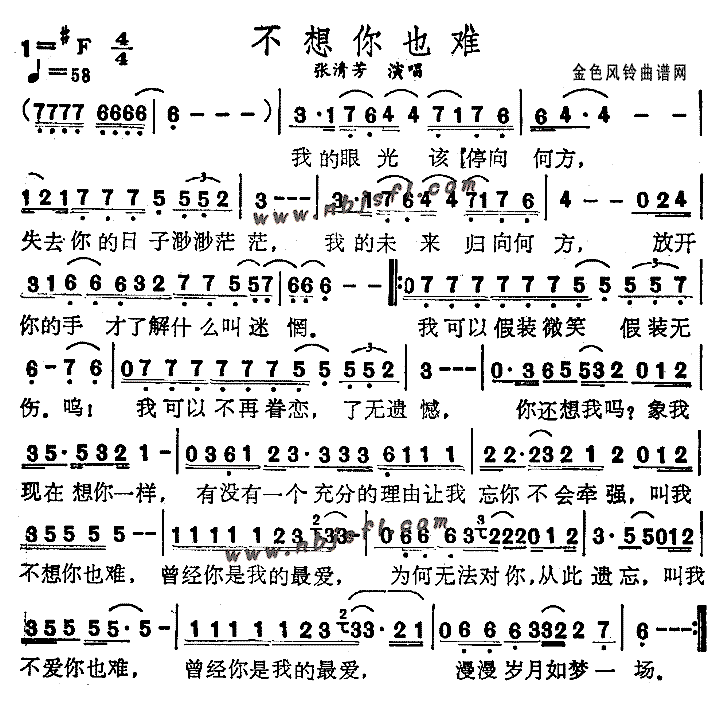 不想你也难
1=#F 4/4
♩=58
张清芳 演唱
金色风铃曲谱网
(7777 6666 | 6 - - - ) | 3·1 7 6 4 4 7 1 7 6 | 6 4 - - |
我的眼光 该【停向 何方，
1 2 1 7 7 7 5 5 5 2 | 3 - - - | 3·1 7 6 4 4 7 1 7 6 | 4 - - 0 2 4
失去你的日子渺渺茫茫， 我的未来 归向何方， 放开
www.nbjsfl.com
3 1 6 6 6 3 2 7 7 5 5 7 | 6 6 6 - - |: 0 7 7 7 7 7 7 5 5 5 5 7 |
你的手 才了解什么叫迷惘。 我可以假装微笑 假装无
6 - 7 6 | 0 7 7 7 7 7 7 7 5 5 5 2 | 3 - - - | 0·3 6 5 5 3 2 0 1 2 |
伤。呜！ 我可以不再眷恋，了无遗憾， 你还想我吗？象我
3 5·5 3 2 1 - | 0 3 6 1 2 3·3 3 3 6 1 1 1 | 2 2·2 3 2 1 2 0 1 2 |
现在想你一样， 有没有一个充分的理由让我 忘你不会牵强，叫我
3 5 5 5 5 5 - - | 1 1 1 1 1 1 2 3 3 3 - | 0 6 6 6 3 2 2 2 0 1 2 | 3·5 5 0 1 2 |
不想你也难， 曾经你是我的最爱， 为何无法对你，从此遗忘，叫我
www.nbjsfl.com
3 5 5 5 5 5·5 - | 1 1 1 1 1 1 2 3 3 3·2 1 | 0 6 6 6 6 3 3 2 2 7 | 6 - - - :|
不爱你也难， 曾经你是我的最爱， 漫漫岁月如梦一场。